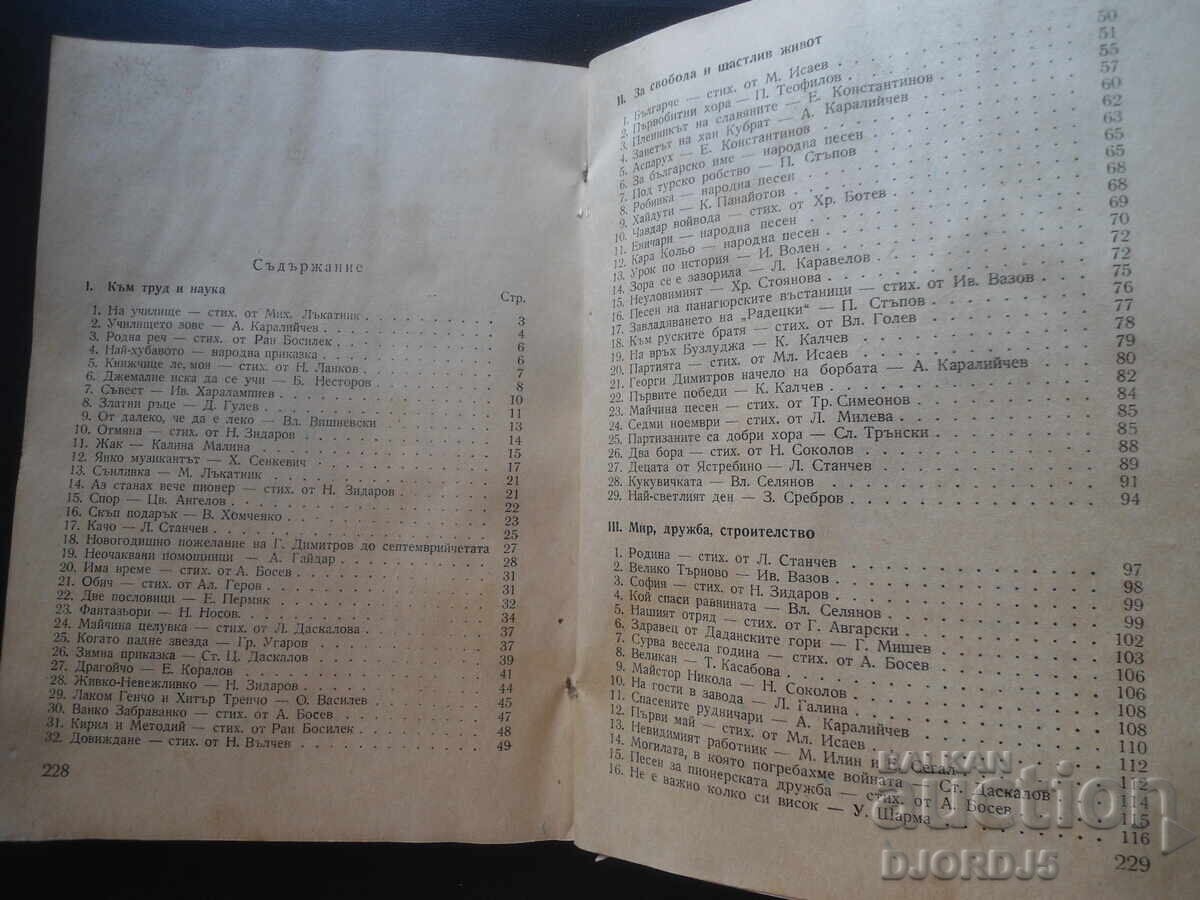 Съдържание
I. Към труд и наука
Стр.
1. На училище — стих. от Мих. Лъкатник 3
2. Училището зове — А. Каралийчев 4
3. Родна реч — стих. от Ран Босилек 6
4. Най-хубавото — народна приказка 6
5. Книжчице ле, моя — стих. от Н. Ланков 7
6. Джемалие иска да се учи — Б. Несторов 8
7. Съвест — Ив. Харалампиев 10
8. Златни ръце — Д. Гулев 11
9. От далеко, че да е леко — Вл. Вишневски 13
10. Отмяна — стих. от Н. Зидаров 14
11. Жак — Калина Малина 15
12. Янко музикантът — Х. Сенкевич 17
13. Сънливка — М. Лъкатник 21
14. Аз станах вече пионер — стих. от Н. Зидаров 21
15. Спор — Цв. Ангелов 22
16. Скъп подарък — В. Хомченко 23
17. Качо — Л. Станчев 25
18. Новогодишно пожелание на Г. Димитров до септемврийчетата 27
19. Неочаквани помощници — А. Гайдар 28
20. Има време — стих. от А. Босев 31
21. Обич — стих. от Ал. Геров 31
22. Две пословици — Е. Пермяк 32
23. Фантазьори — Н. Носов 34
24. Майчина целувка — стих. от Л. Даскалова 37
25. Когато падне звезда — Гр. Угаров 37
26. Зимна приказка — Ст. Ц. Даскалов 39
27. Драгойчо — Е. Коралов 41
28. Живко-Невежливко — Н. Зидаров 44
29. Лаком Генчо и Хитър Тренчо — О. Василев 45
30. Ванко Забраванко — стих. от А. Босев 47
31. Кирил и Методий — стих. от Ран Босилек 48
32. Довиждане — стих. от Н. Вълчев 49
228
II. За свобода и щастлив живот
1. Българче — стих. от М. Исаев 50
2. Първобитни хора — П. Теофилов 51
3. Пленникът на славяните — Е. Константинов 55
4. Заветът на хан Кубрат — А. Каралийчев 57
5. Аспарух — Е. Константинов 60
6. За българско име — народна песен 62
7. Под турско робство — П. Стъпов 63
8. Робинка — народна песен 65
9. Хайдути — К. Панайотов 65
10. Чавдар войвода — стих. от Хр. Ботев 68
11. Еничари — народна песен 68
12. Кара Кольо — народна песен 69
13. Урок по история — И. Волен 70
14. Зора се е зазорила — Л. Каравелов 72
15. Неуловимият — Хр. Стоянова 72
16. Песен на панагюрските въстаници — стих. от Ив. Вазов 75
17. Завладяването на „Радецки“ — П. Стъпов 76
18. Към руските братя — стих. от Вл. Голев 77
19. На връх Бузлуджа — К. Калчев 78
20. Партията — стих. от Мл. Исаев 79
21. Георги Димитров начело на борбата — А. Каралийчев 80
22. Първите победи — К. Калчев 82
23. Майчина песен — стих. от Тр. Симеонов 84
24. Седми ноември — стих. от Л. Милева 85
25. Партизаните са добри хора — Сл. Трънски 85
26. Два бора — стих. от Н. Соколов 88
27. Децата от Ястребино — Л. Станчев 89
28. Кукувичката — Вл. Селянов 91
29. Най-светлият ден — З. Сребров 94
III. Мир, дружба, строителство
1. Родина — стих. от Л. Станчев 97
2. Велико Търново — Ив. Вазов 98
3. София — стих. от Н. Зидаров 99
4. Кой спаси равнината — Вл. Селянов 99
5. Нашият отряд — стих. от Г. Авгарски 102
6. Здравец от Даданските гори — Г. Мишев 103
7. Сурва весела година — стих. от А. Босев 106
8. Великан — Т. Касабова 106
9. Майстор Никола — Н. Соколов 108
10. На гости в завода — Л. Галина 108
11. Спасените рудничари — А. Каралийчев 110
12. Първи май — стих. от Мл. Исаев 112
13. Невидимият работник — М. Илин и Е. Сегал 112
14. Могилата, в която погребахме войната — Ст. Даскалов 114
15. Песен за пионерската дружба — стих. от А. Босев 115
16. Не е важно колко си висок — У. Шарма 116
229
BALKAN
auction
DJORDJ5